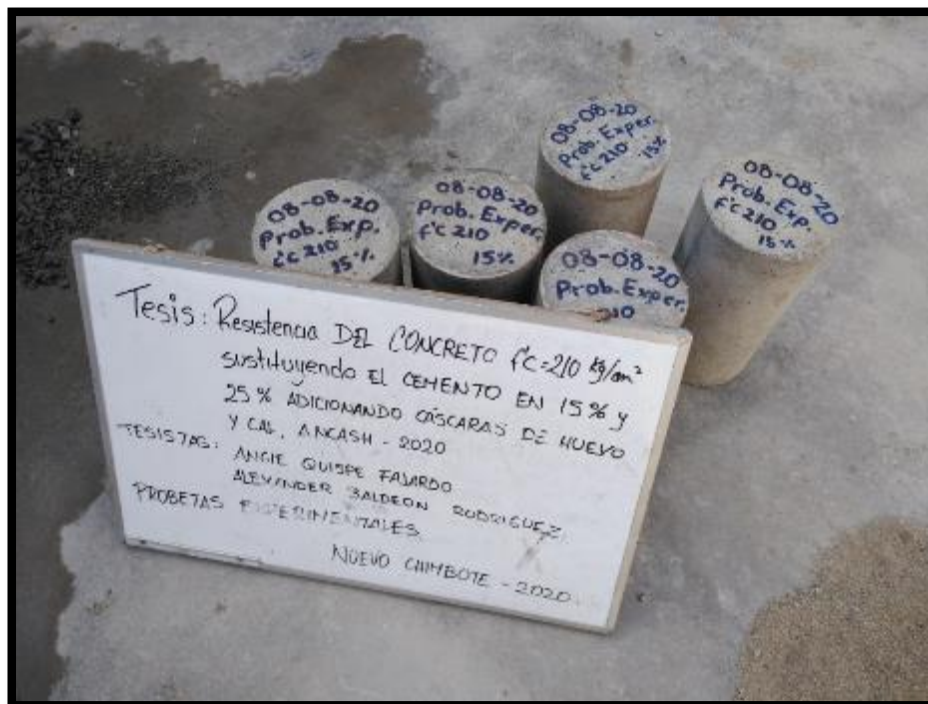 08-08-20
Prob. Exper.
f'c 210
15%
08-08-20
Prob. Exp.
f'c 210
15%
08-08-20
Prob. Exper.
f'c 210
15%
08-08-20
Prob. Exp.
f'c 210
15%
08-08-20
Prob. Exper.
10
Tesis: Resistencia DEL CONCRETO f'c=210 kg/cm²
sustituyendo EL CEMENTO EN 15% y
25% ADICIONANDO CÁSCARAS DE HUEVO
Y CAL, ANCASH - 2020
TESISTAS: ANGIE QUISPE FAJARDO
ALEXANDER BALDEON RODRIGUEZ
PROBETAS EXPERIMENTALES
NUEVO CHIMBOTE - 2020